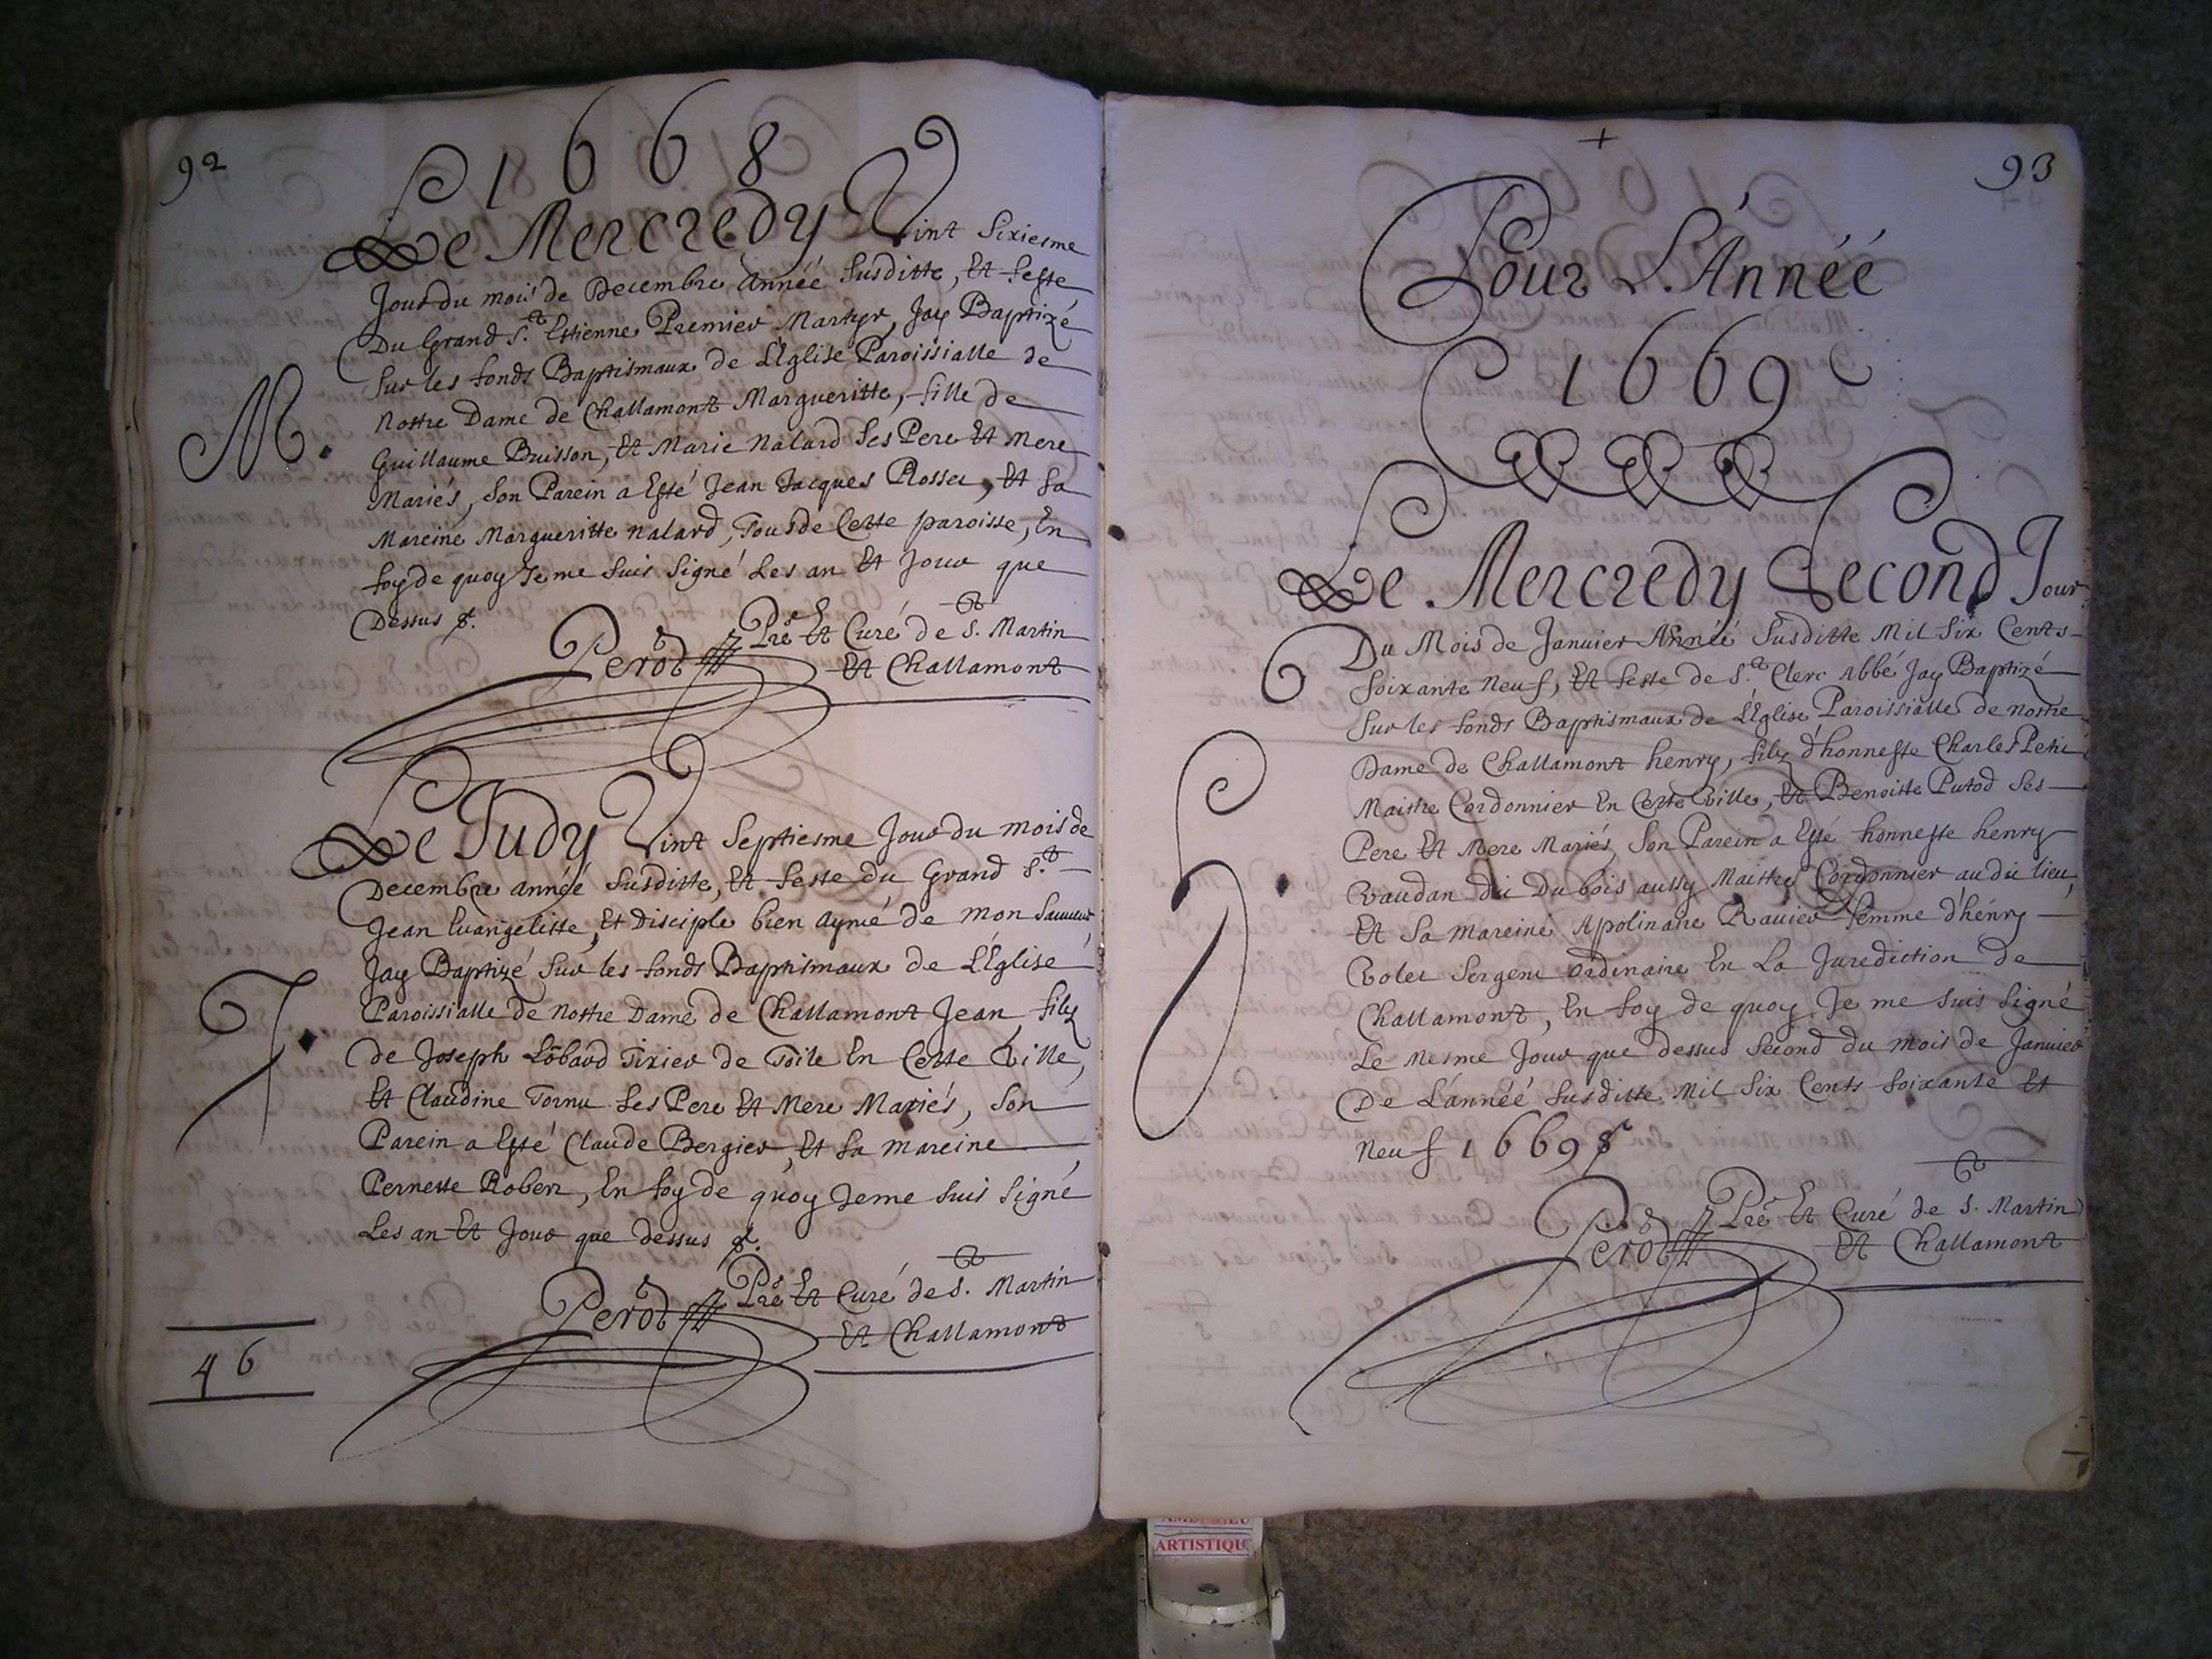 92
1668
Le Mercredy Vint Sixiesme
Jour du mois de Decembre Année Susditte, Et feste
Du Grand S.t Estienne Premier Martyr, Jay Baptizé
Sur les fonds Baptismaux de L'Église Paroissialle de
M.
Nostre Dame de Challamont Margueritte, fille de
Guillaume Buisson, Et Marie Nalard Ses Pere Et Mere
Mariés, Son Parein a Esté Jean Jacques Rosset, Et Sa
Mareine Margueritte Nalard, Tous de Cette paroisse, En
foy de quoy Je me Suis Signé Les an Et Jour que
Dessus
Perod Pre Et Curé de S.t Martin
Et Challamont
Le Judy Vint Septiesme Jour du mois de
Decembre année Susditte, Et feste du Grand S.t
Jean Evangeliste, Et Disciple bien aymé de mon Sauveur
Jay Baptizé Sur les fonds Baptismaux de L'Église
J.
Paroissialle de Nostre Dame de Challamont Jean, filz
de Joseph Lõbard Tixier de Toile En Cette Ville,
Et Claudine Tornu Ses Pere Et Mere Mariés, Son
Parein a Esté Claude Bergier, Et Sa mareine
Pernette Robert, En foy de quoy Je me Suis Signé
Les an Et Jour que dessus
Perod Pre Et Curé de S.t Martin
Et Challamont
46
+
93
Pour L'Année
1669
Le Mercredy Second Jour
Du Mois de Janvier Année Susditte Mil Six Cents
Soixante Neuf, Et feste de S.t Clerc Abbé Jay Baptizé
Sur les fonds Baptismaux de L'Église Paroissialle de nostre
Dame de Challamont henry, filz d'honneste Charles Petit
Maistre Cordonnier En Cette Ville, Et Benoitte Putod Ses
Pere Et Mere Mariés, Son Parein a Esté honneste henry
Vaudan dit Du bois aussy Maistre Cordonnier au dit lieu,
Et Sa mareine Apolinaire Ravier femme d'henry
Volet Sergent ordinaire En La Jurediction de
Challamont, En foy de quoy Je me Suis Signé
Le Mesme Jour que dessus Second du mois de Janvier
De L'année Susditte Mil Six Cents Soixante Et
Neuf 1669
Perod Pre Et Curé de S.t Martin
Et Challamont
ARTISTIQU